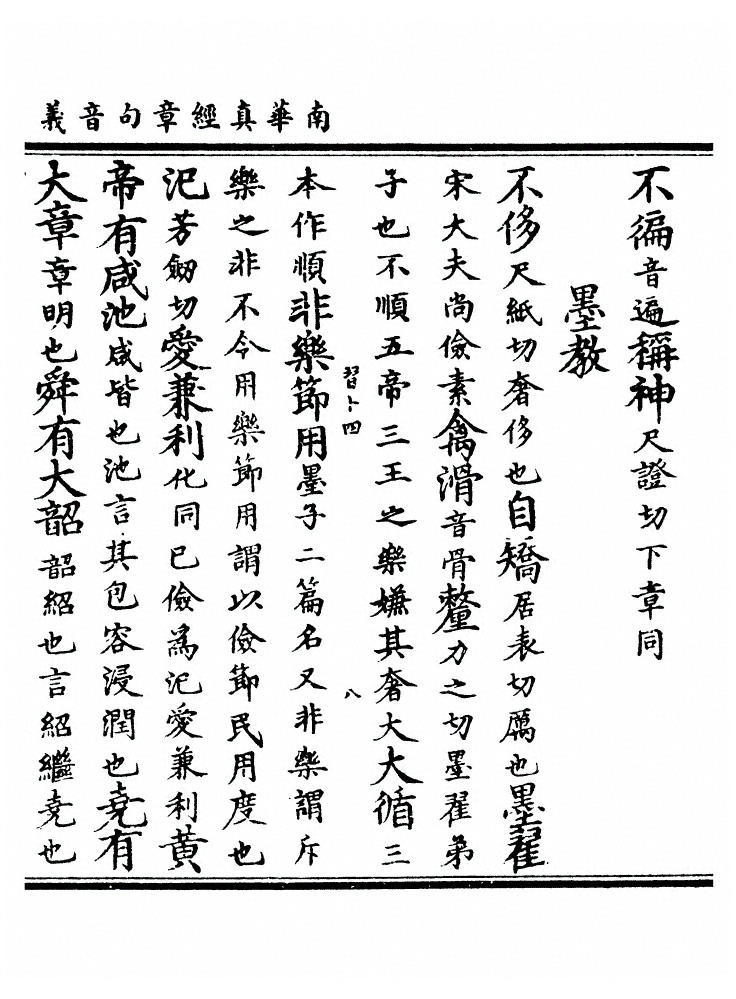 南華真經章句音義
不徧音遍稱神尺證切下章同
墨教
不侈尺紙切奢侈也自矯居表切厲也墨翟
宋大夫尚儉素禽滑音骨釐力之切墨翟弟
子也不順五帝三王之樂嫌其奢大大循三
習卜四
八
本作順非樂節用墨子二篇名又非樂謂斥
樂之非不今用樂節用謂以儉節民用度也
汜芳劒切愛兼利化同已儉為汜愛兼利黃
帝有咸池咸皆也池言其包容浸潤也堯有
大章章明也舜有大韶韶紹也言紹繼堯也